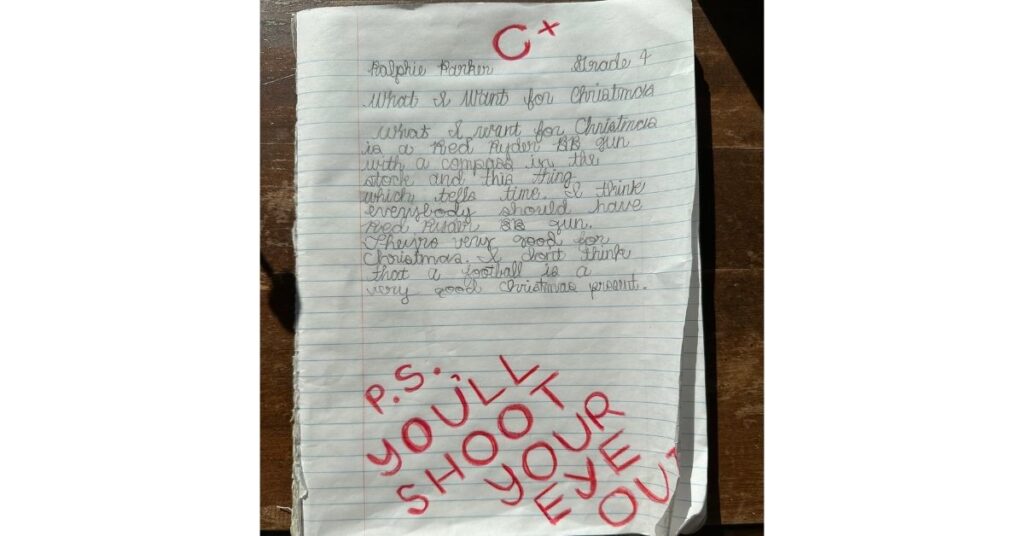 C+
Ralphie Parker Grade 4
What I Want for Christmas
What I want for Christmas
is a Red Ryder BB gun
with a compass in the
stock and this thing
which tells time. I think
everybody should have
Red Ryder BB gun.
They're very good for
Christmas. I don't think
that a football is a
very good Christmas present.
P.S.
YOU'LL
SHOOT
YOUR
EYE
OUT